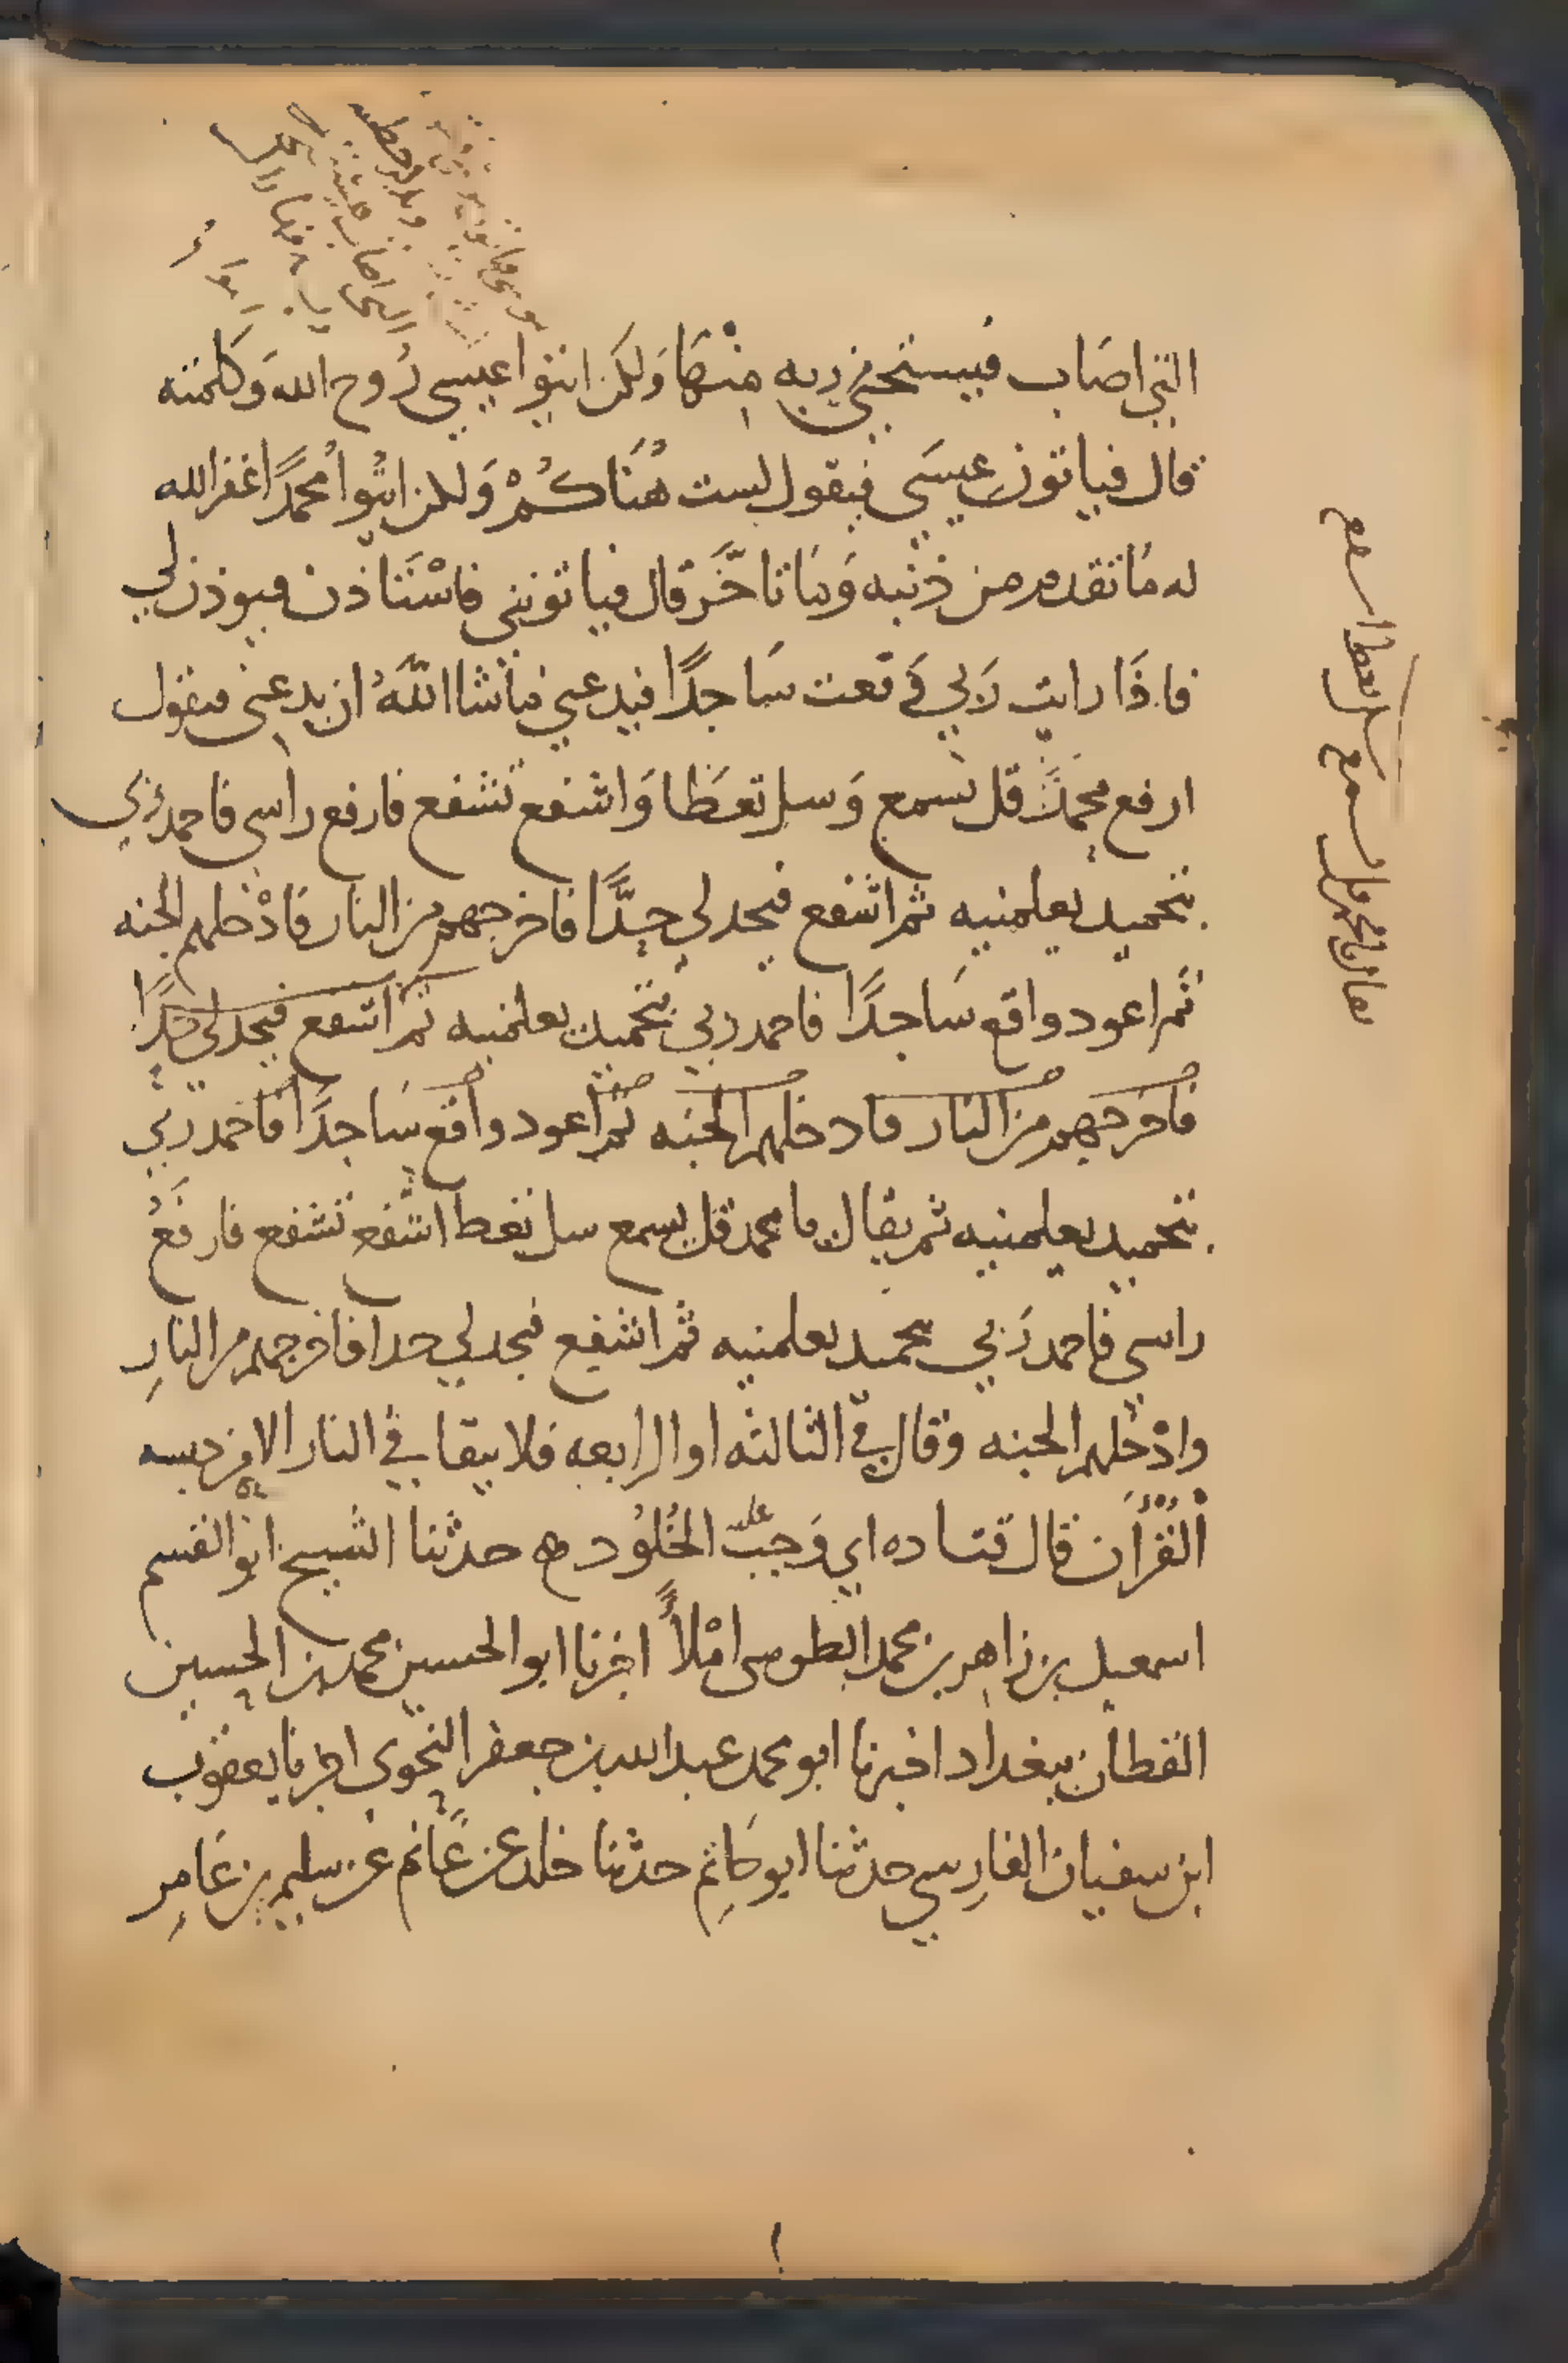 التي اصَاب فيستحيي ربه منهَا وَلكن ائتوا عيسى رُوح الله وَكلمته
قال فياتون عيسَى فيقول لست هُنَاكُمْ وَلكن ائتُوا مُحمدًا غفر الله
له مَا تقدم من ذنبه وَمَا تاخَّر قال فياتونني فاسْتَاذن فيوذن لي
فاذَا رايت رَبي وَقعت سَاجدًا فيدعني مَا شا اللهُ ان يدعني فيقول
ارفع محمد قل تسمع وَسل تعطَا وَاشفع تشفع فارفع راسي فاحمد رَبي
بتحميد يعلمنيه ثم اشفع فيحد لي حدًّا فاخرجهم من النار فادْخلهم الجنه
ثم اعود واقع سَاجدًا فاحمد ربي بتحميد يعلمنيه ثم اشفع فيحد لي حدًا
فاخرجهم من النار فادخلهم الجنه ثم اعود واقع سَاجدًا فاحمد ربي
بتحميد يعلمنيه ثم يقال يا محمد قل يسمع سل تعط اشفع تشفع فارفعُ
راسي فاحمد رَبي بتحميد يعلمنيه ثم اشفع فيحد لي حدا فاخرجهم من النارِ
وادْخلهم الجنه وقال في الثالثه او الرابعه فلا يبقا في النار الا من حبسه
القُرْآن قال قتاده اي وَجبَ عليه الخُلوُد ه حدثنا الشيخ ابو القسم
اسمعيل بن زاهر بن محمد الطوسي امْلاً اخبرنا ابو الحسين محمد بن الحسين
القطان ببغداد اخبرنا ابو محمد عبد الله بن جعفر النحوي اخبرنا يعقوب
ابن سفيان الفارِسي حدثنا ابو حَاتِم حدثنا خلد عن غَانم عن سليم بن عَامِر